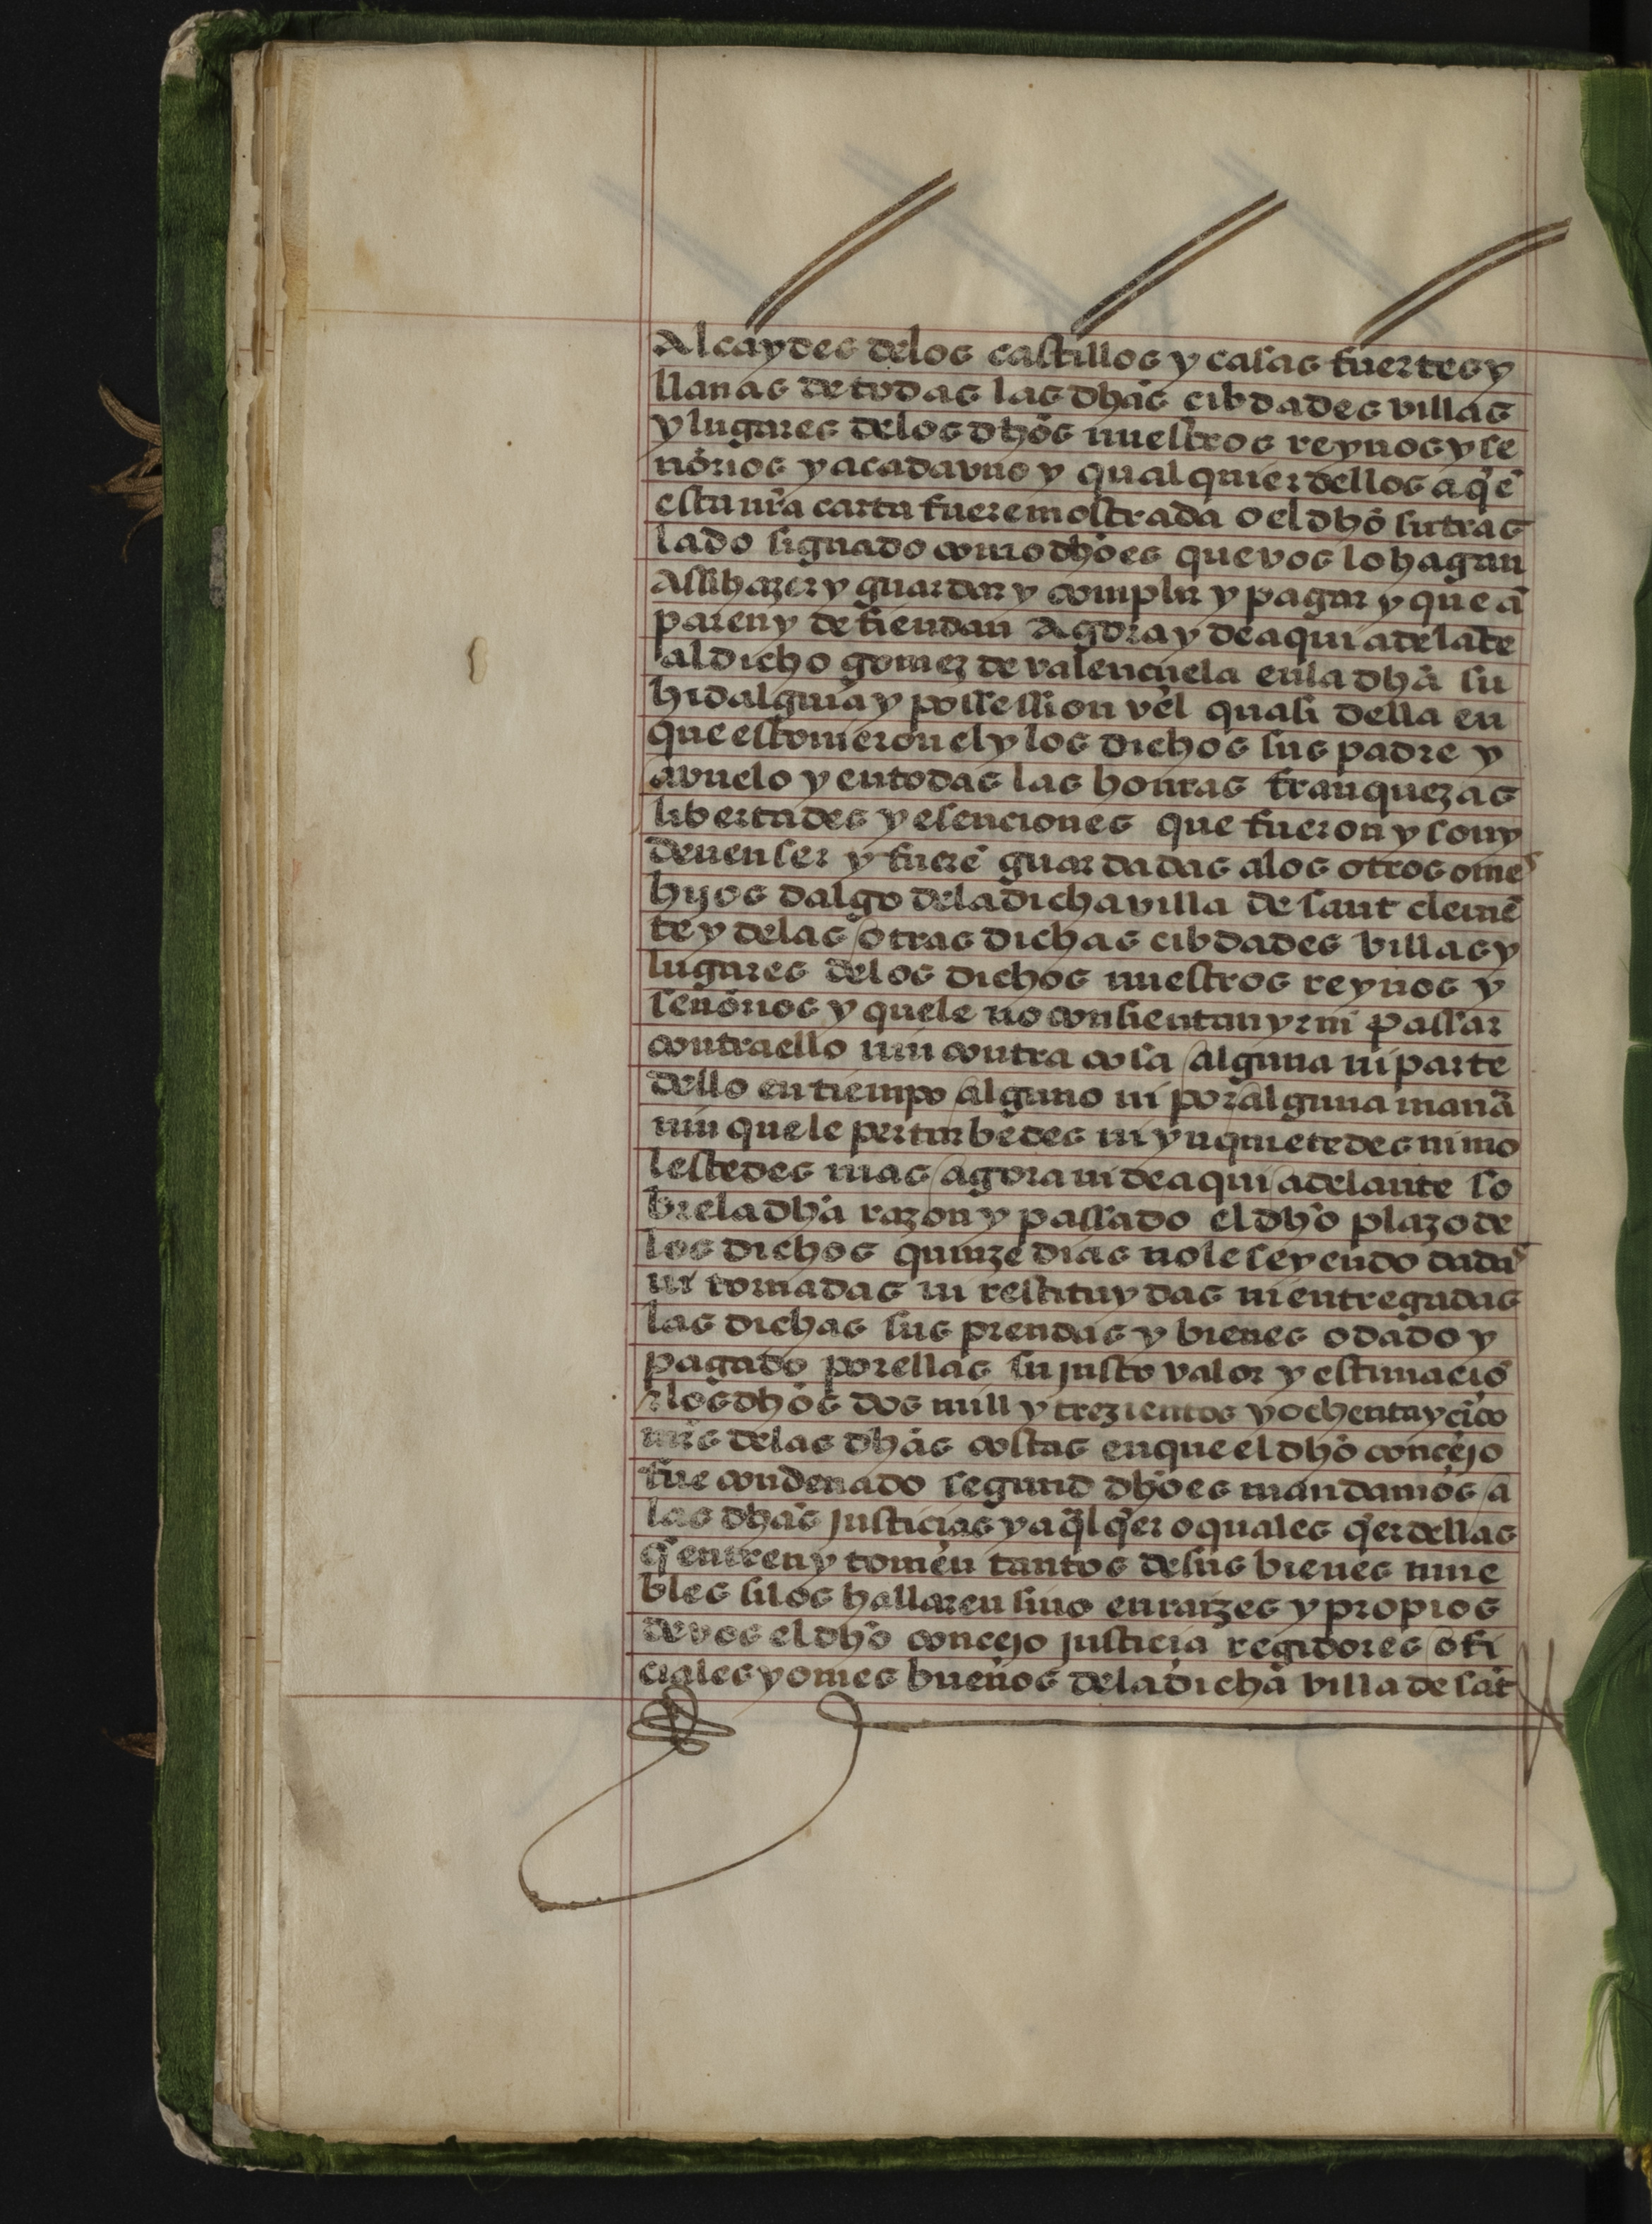 Alcaydes delos castillos y casas fuertes y
llanas de todas las dhãs cibdades villas
y lugares delos dhõs nuestros reynos y se
nõrios y acadavno y qual quier dellos aq̃ẽ
esta nr̃a carta fuere mostrada o el dhõ su tras
lado signado como dhõ es que vos lo hagan
Assi hazer y guardar y complir y pagar y que ã
paren y defiendan Agora y de aqui adelãte
al dicho gomez de valençuela enla dhã su
hidalguia y possession vel quasi della en
que estouieron el y los dichos sus padre y
avuelo y en todas las honras franquezas
libertades y esenciones que fueron y son y
deuen ser y fuerẽ guardadas alos otros omes
hijos dalgo dela dicha villa de sant clemẽ
te y delas otras dichas cibdades villas y
lugares delos dichos nuestros reynos y
senõrios y quele no consientan yr ni passar
contra ello nin contra cosa alguna ni parte
dello en tiempo alguno ni por alguna manã
nin que le perturbedes ni ynquietedes ni mo
lestedes mas agora ni de aqui adelante so
bre la dhã razon y passado el dhõ plazo de
los dichos quinze dias nole seyendo dadas
ni tornadas ni restituydas ni entregadas
las dichas sus prendas y bienes o dado y
pagado por ellas su justo valor y estimaciõ
y los dhõs dos mill y trezientos y ochenta y cĩco
mr̃s delas dhãs costas en que el dhõ concejo
fue condenado segund dhõ es mandamos a
las dhãs justicias y a q̃l q̃er o quales q̃er dellas
q̃ entren y tomen tantos de sus bienes mue
bles silos hallaren sino en raizes y propios
de vos el dhõ concejo justicia regidores ofi
ciales y omes buenos dela dicha villa de sãt